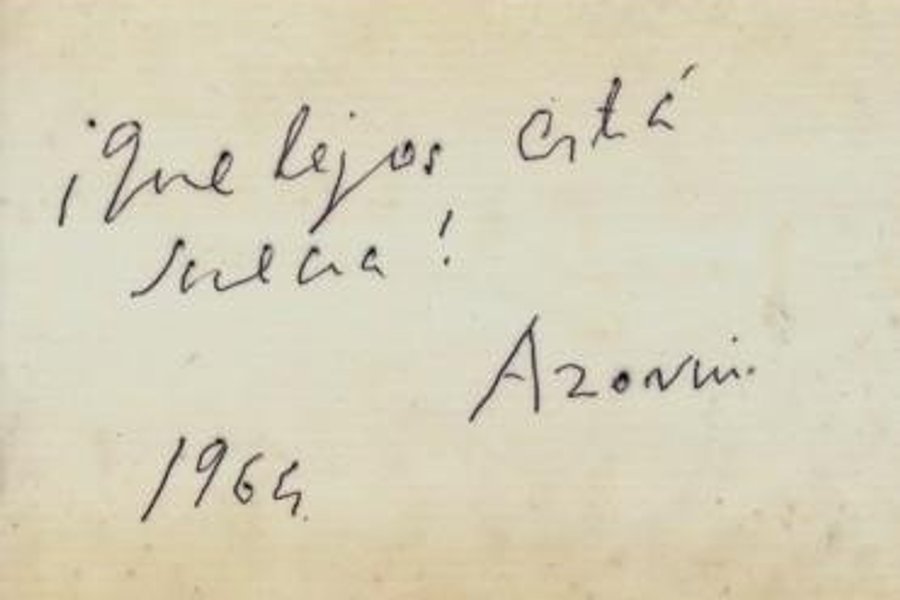 ¡Que lejos está
Suecia!
Azorín.
1964.